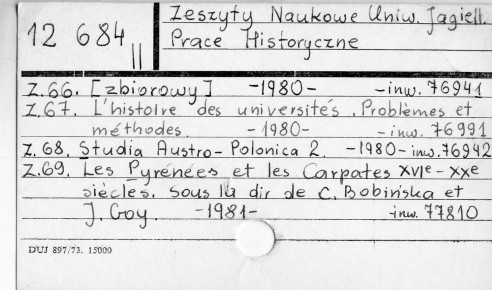 Zeszyty Naukowe Uniw. Jagiell.
12 684 II
Prace Historyczne
Z.66. [zbiorowy] -1980- -inw. 76941
Z.67. L'histoire des universités. Problèmes et
méthodes. -1980- -inw. 76991
Z.68. Studia Austro-Polonica 2. -1980- inw. 76942
Z.69. Les Pyrénées et les Carpates XVIe - XXe
siècles. Sous la dir de C. Bobińska et
J. Goy. -1981- -inw. 77810
DUJ 897/73. 15000